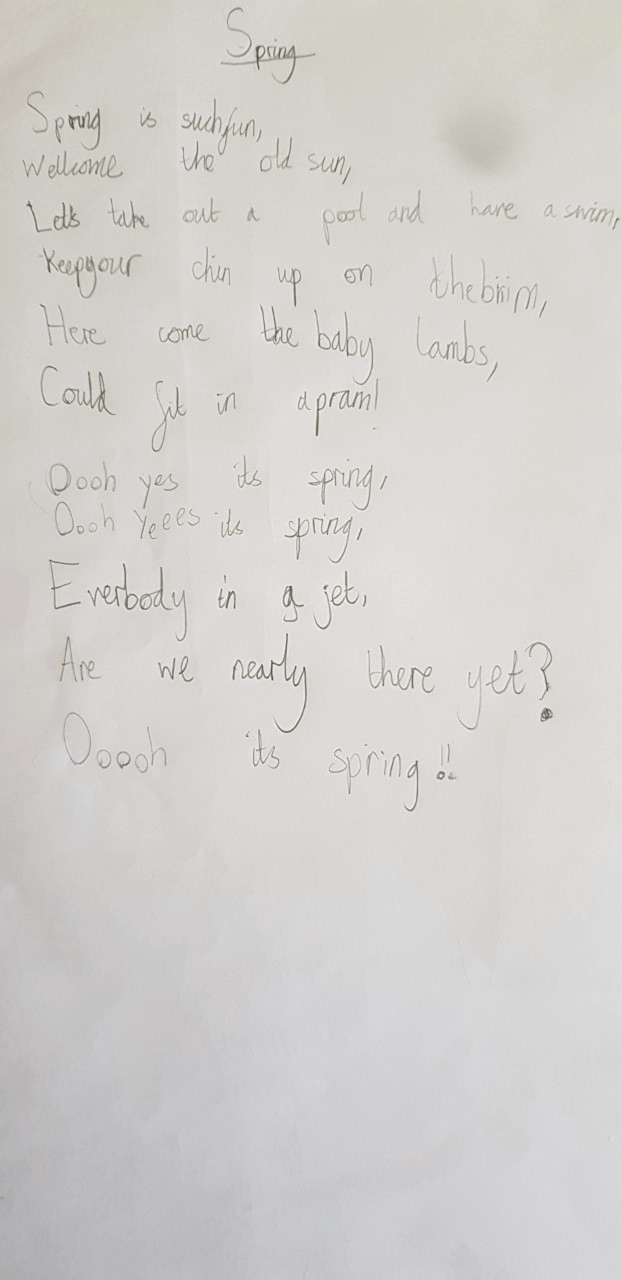 Spring
Spring is such fun,
Wellcome the old sun,
Let's take out a pool and have a swim,
Keep your chin up on the briim,
Here come the baby lambs,
Could fit in a pram!
Oooh yes its spring,
Oooh Yeees its spring,
Everbody in a jet,
Are we nearly there yet?
Ooooh its spring!!